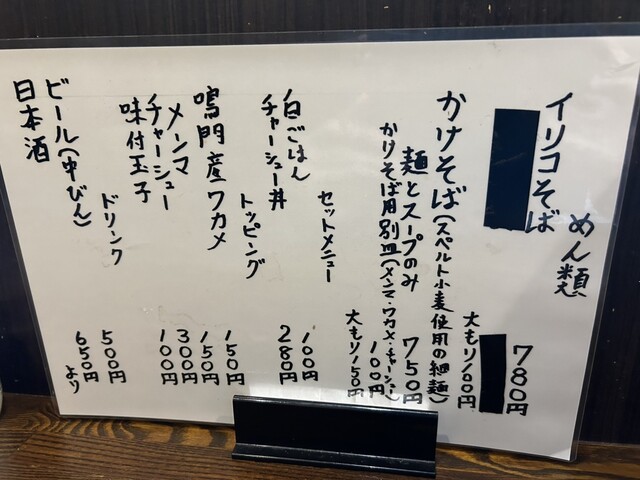 めん類
イリコそば 780円
大もり100円
かけそば(スペルト小麦使用の細麺)
麺とスープのみ 750円
かけそば用別皿(メンマ・ワカメ・チャーシュー) 100円
大もり150円
セットメニュー
白ごはん 100円
チャーシュー丼 280円
トッピング
鳴門産ワカメ 150円
メンマ 150円
チャーシュー 300円
味付玉子 100円
ドリンク
ビール(中びん) 500円
日本酒 650円より